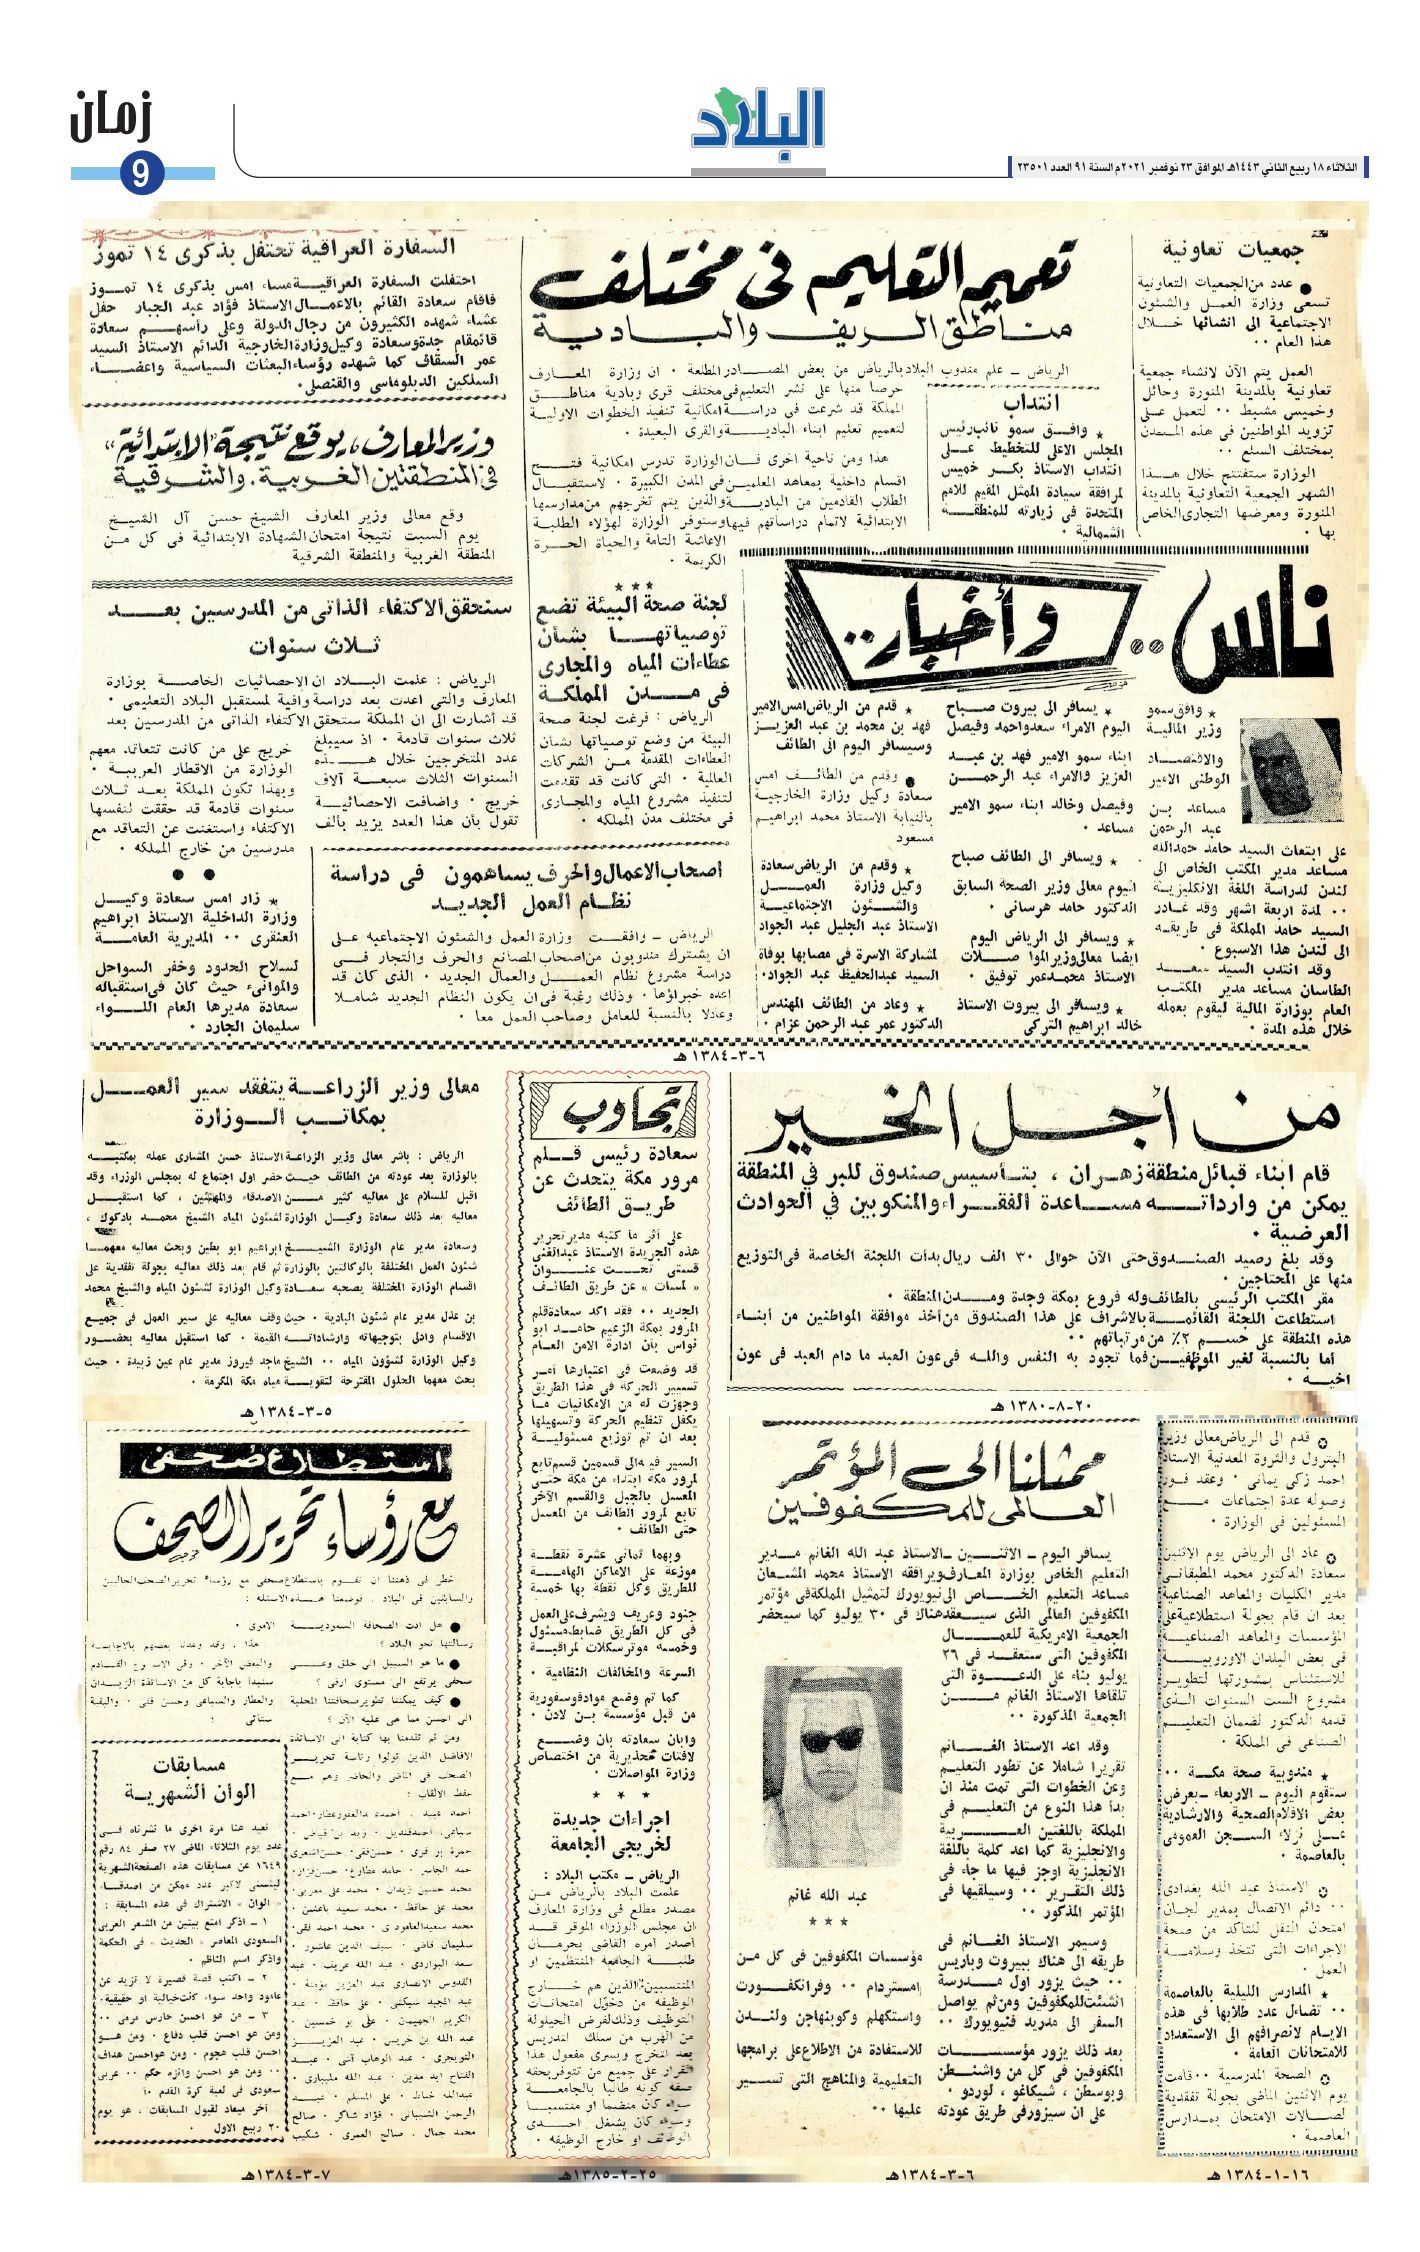 زمان
9
البلاد
الثلاثاء ١٨ ربيع الثاني ١٤٤٣هـ الموافق ٢٣ نوفمبر ٢٠٢١م السنة ٩١ العدد ٢٣٥٠١
جمعيات تعاونية
● عدد من الجمعيات التعاونية
تسعى وزارة العمل والشئون
الاجتماعية الى انشائها خلال
هذا العام ٠٠
العمل يتم الآن لانشاء جمعية
تعاونية بالمدينة المنورة وحائل
وخميس مشيط ٠٠ لتعمل على
تزويد المواطنين في هذه المدن
بمختلف السلع ٠٠
الوزارة ستفتتح خلال هذا
الشهر الجمعية التعاونية بالمدينة
المنورة ومعرضها التجارى الخاص
بها ٠
تعميم التعليم فى مختلف
مناطق الريف والبادية
الرياض ــ علم مندوب البلاد بالرياض من بعض المصادر المطلعة ٠ ان وزارة المعارف
حرصا منها على نشر التعليم فى مختلف قرى وبادية مناطق
المملكة قد شرعت فى دراسة امكانية تنفيذ الخطوات الاولية
لتعميم تعليم ابناء البادية والقرى البعيدة ٠
هذا ومن ناحية اخرى فان الوزارة تدرس امكانية فتح
اقسام داخلية بمعاهد المعلمين فى المدن الكبيرة ٠ لاستقبال
الطلاب القادمين من البادية والذين يتم تخرجهم من مدارسها
الابتدائية لاتمام دراساتهم فيها وستوفر الوزارة لهؤلاء الطلبة
الاعاشة التامة والحياة الحرة
الكريمة ٠
انتداب
★ وافق سمو نائب رئيس
المجلس الاعلى للتخطيط على
انتداب الاستاذ بكر خميس
لمرافقة سيادة الممثل المقيم للامم
المتحدة فى زيارته للمنطقة
الشمالية ٠
السفارة العراقية تحتفل بذكرى ١٤ تموز
احتفلت السفارة العراقية مساء امس بذكرى ١٤ تموز
فاقام سعادة القائم بالاعمال الاستاذ فؤاد عبد الجبار حفل
عشاء شهده الكثيرون من رجال الدولة وعلى رأسهم سعادة
قائمقام جدة وسعادة وكيل وزارة الخارجية الدائم الاستاذ السيد
عمر السقاف كما شهده رؤساء البعثات السياسية واعضاء
السلكين الدبلوماسى والقنصلى ٠
وزير المعارف، يوقع نتيجة "الابتدائية"
فى المنطقتين الغربية . والشرقية
وقع معالى وزير المعارف الشيخ حسن آل الشيخ
يوم السبت نتيجة امتحان الشهادة الابتدائية فى كل من
المنطقة الغربية والمنطقة الشرقية
سنحقق الاكتفاء الذاتى من المدرسين بعد
ثلاث سنوات
الرياض : علمت البلاد ان الاحصائيات الخاصة بوزارة
المعارف والتى اعدت بعد دراسة وافية لمستقبل البلاد التعليمى ٠
قد أشارت الى ان المملكة ستحقق الاكتفاء الذاتى من المدرسين بعد
ثلاث سنوات قادمة ٠ اذ سيبلغ
عدد المتخرجين خلال هذه
السنوات الثلاث سبعة آلاف
خريج ٠ واضافت الاحصائية
تقول بأن هذا العدد يزيد بألف
خريج على من كانت تتعاقد معهم
الوزارة من الاقطار العربية ٠
وبهذا تكون المملكة بعد ثلاث
سنوات قادمة قد حققت لنفسها
الاكتفاء واستغنت عن التعاقد مع
مدرسين من خارج المملكه ٠
★ زار امس سعادة وكيل
وزارة الداخلية الاستاذ ابراهيم
العنقرى ٠٠ المديرية العامة
لسلاح الحدود وخفر السواحل
والموانىء حيث كان فى استقباله
سعادة مديرها العام اللواء
سليمان الجارد ٠
لجنة صحة البيئة تضع
توصياتها بشأن
عطاءات المياه والمجارى
فى مدن المملكة
الرياض : فرغت لجنة صحة
البيئة من وضع توصياتها بشأن
العطاءات المقدمة من الشركات
العالمية ٠ التى كانت قد تقدمت
لتنفيذ مشروع المياه والمجارى
فى مختلف مدن المملكه ٠
اصحاب الاعمال والحرف يساهمون فى دراسة
نظام العمل الجديد
الرياض ــ وافقت وزارة العمل والشئون الاجتماعيه على
ان يشترك مندوبون من اصحاب المصانع والحرف والتجار فى
دراسة مشروع نظام العمل والعمال الجديد ٠ الذى كان قد
اعده خبراؤها ٠ وذلك رغبة فى ان يكون النظام الجديد شاملا
وعادلا بالنسبة للعامل وصاحب العمل معا ٠
ناس .. وأخبار ..
★ وافق سمو
وزير المالية
والاقتصاد
الوطنى الامير
مساعد بن
عبد الرحمن
على ابتعاث السيد حامد حمدالله
مساعد مدير المكتب الخاص الى
لندن لدراسة اللغة الانكليزية
٠٠ لمدة اربعة اشهر وقد غادر
السيد حامد المملكة فى طريقه
الى لندن هذا الاسبوع ٠
وقد انتدب السيد سعد
الطاسان مساعد مدير المكتب
العام بوزارة المالية ليقوم بعمله
خلال هذه المدة ٠
★ يسافر الى بيروت صباح
اليوم الامراء سعود واحمد وفيصل
ابناء سمو الامير فهد بن عبد
العزيز والامراء عبد الرحمن
وفيصل وخالد ابناء سمو الامير
مساعد ٠
★ ويسافر الى الطائف صباح
اليوم معالى وزير الصحة السابق
الدكتور حامد هرسانى ٠
★ ويسافر الى الرياض اليوم
ايضا معالى وزير المواصلات
الاستاذ محمد عمر توفيق ٠
★ ويسافر الى بيروت الاستاذ
خالد ابراهيم التركى
★ قدم من الرياض امس الامير
فهد بن محمد بن عبد العزيز
وسيسافر اليوم الى الطائف
● وقدم من الطائف امس
سعادة وكيل وزارة الخارجية
بالنيابة الاستاذ محمد ابراهيم
مسعود
★ وقدم من الرياض سعادة
وكيل وزارة العمل
والشئون الاجتماعية
الاستاذ عبد الجليل عبد الجواد
لمشاركة الاسرة فى مصابها بوفاة
السيد عبدالحفيظ عبد الجواد ٠
★ وعاد من الطائف المهندس
الدكتور عمر عبد الرحمن عزام ٠
٦-٣-١٣٨٤ هـ
من أجل الخير
قام ابناء قبائل منطقة زهران ، بتأسيس صندوق للبر في المنطقة
يمكن من وارداته مساعدة الفقراء والمنكوبين في الحوادث
العرضية ٠
وقد بلغ رصيد الصندوق حتى الآن حوالى ٣٠ الف ريال بدأت اللجنة الخاصة فى التوزيع
منها على المحتاجين ٠
مقر المكتب الرئيسي بالطائف وله فروع بمكة وجدة ومدن المنطقة ٠
استطاعت اللجنة القائمة بالاشراف على هذا الصندوق من أخذ موافقة المواطنين من أبناء
هذه المنطقة على حسم ٢٪ من مرتباتهم ٠٠
أما بالنسبة لغير الموظفين فما تجود به النفس والله فى عون العبد ما دام العبد فى عون
اخيه ٠
٢٠-٨-١٣٨٠ هـ
تجاوب
سعادة رئيس قلم
مرور مكة يتحدث عن
طريق الطائف
على أثر ما كتبه مدير تحرير
هذه الجريدة الاستاذ عبدالغنى
قستى تحت عنوان
« لمسات » عن طريق الطائف
الجديد ٠٠ فقد اكد سعادة قلم
المرور بمكة الزعيم حامد ابو
نواس بأن ادارة الامن العام
قد وضعت فى اعتبارها أمر
تسيير الحركة فى هذا الطريق
وجهزت له من الامكانيات ما
يكفل تنظيم الحركة وتسهيلها
بعد ان تم توزيع مسئولية
السير فيه الى قسمين قسم تابع
لمرور مكة ابتداء من مكة حتى
المعسل بالجبل والقسم الآخر
تابع لمرور الطائف من المعسل
حتى الطائف ٠
وبهما ثمانى عشرة نقطة
موزعة على الاماكن الهامة
للطريق وكل نقطة بها خمسة
جنود وعريف ويشرف على العمل
فى كل الطريق ضابط مسئول
وخمسه موترسكلات لمراقبة
السرعة والمخالفات النظامية ٠
كما تم وضع مواد فوسفورية
من قبل مؤسسة بن لادن ٠
وأبان سعادته بأن وضع
لافتات تحذيرية من اختصاص
وزارة المواصلات ٠
★ ★ ★
اجراءات جديدة
لخريجى الجامعة
الرياض ــ مكتب البلاد :
علمت البلاد بالرياض من
مصدر مطلع فى وزارة المعارف
أن مجلس الوزراء الموقر قد
أصدر أمره القاضى بحرمان
طلبة الجامعة المنتظمين او
المنتسبين الذين هم خارج
الوظيفه من دخول امتحانات
التوظيف وذلك لفرض الحيلولة
من الهرب من سلك التدريس
بعد التخرج ويسرى مفعول هذا
القرار على جميع من تتوفر بحقه
صفة كونه طالبا بالجامعة
سواء كان منضما او منتسبا
وسواء كان يشغل احدى
الوظائف او خارج الوظيفه ٠
٢٥-٢-١٣٨٥هـ
معالى وزير الزراعة يتفقد سير العمل
بمكاتب الوزارة
الرياض : باشر معالى وزير الزراعة الاستاذ حسن المشارى عمله بمكتبه
بالوزارة بعد عودته من الطائف حيث حضر اول اجتماع له بمجلس الوزراء وقد
اقبل للسلام على معاليه كثير من الاصدقاء والمهنئين ، كما استقبل
معاليه بعد ذلك سعادة وكيل الوزارة لشئون المياه الشيخ محمد بادكوك ،
وسعادة مدير عام الوزارة الشيخ ابراهيم ابو بطين وبحث معاليه معهما
شئون العمل المختلفة بالوكالتين بالوزارة ثم قام بعد ذلك معاليه بجولة تفقدية على
اقسام الوزارة المختلفة يصحبه سعادة وكيل الوزارة لشئون المياه والشيخ محمد
بن عذل مدير عام شئون البادية ٠ حيث وقف معاليه على سير العمل فى جميع
الاقسام وادلى بتوجيهاته وارشاداته القيمة ٠ كما استقبل معاليه بحضور
وكيل الوزارة لشؤون المياه ٠٠ الشيخ ماجد فيروز مدير عام عين زبيدة ٠ حيث
بحث معهما الحلول المقترحة لتقوية مياه مكة المكرمة ٠
٥-٣-١٣٨٤ هـ
استطلاع صحفى
مع رؤساء تحرير الصحف
خطر فى ذهننا ان نقوم باستطلاع صحفى مع رؤساء تحرير الصحف الحاليين
والسابقين فى البلاد ٠ فوضعنا هذه الاسئلة :
● هل ادت الصحافة السعودية
رسالتها نحو البلاد ؟
● ما هو السبيل الى خلق وعى
صحفى يرتفع الى مستوى ارقى ؟
● كيف يمكننا تطوير صحافتنا المحلية
الى احسن مما هى عليه الآن ؟
ومن ثم تقدمنا بها كتابة الى الاساتذة
الافاضل الذين تولوا رئاسة تحرير
الصحف فى الماضى والحاضر وهم مع
حفظ الالقاب :
هذا ٠ وقد وعدنا بعضهم بالاجابة
والبعض الآخر ٠ وفى الاسبوع القادم
سنبدأ باجابة كل من الاساتذة الزيدان
والعطار والسباعى وحسن قتى ٠ والبقية
ستأتى ٠
مسابقات
الوان الشهرية
نعيد هنا مرة اخرى ما نشرناه فى
عدد يوم الثلاثاء الماضى ٢٧ صفر ٨٤ رقم
١٦٤٩ عن مسابقات هذه الصفحة الشهرية
ليتسنى لاكبر عدد ممكن من اصدقاء
« الوان » الاشتراك فى هذه المسابقة :
١ ــ اذكر امتع بيتين من الشعر العربى
السعودى المعاصر « الحديث » فى الحكمة
واذكر اسم الناظم ٠
٢ ــ اكتب قصة قصيرة لا تزيد عن
عامود واحد سواء كانت خيالية او حقيقية ٠
٣ ــ من هو احسن حارس مرمى ٠٠
ومن هو احسن قلب دفاع ٠ ومن هو
احسن قلب هجوم ٠ ومن هو احسن هداف
٠٠ ومن هو احسن وانزه حكم ٠٠ عربى
سعودى فى لعبة كرة القدم ؟
آخر ميعاد لقبول المسابقات ٠ هو يوم
٢٠ ربيع الاول ٠
٧-٣-١٣٨٤هـ
ممثلنا الى المؤتمر
العالمى للمكفوفين
يسافر اليوم ــ الاثنين ــ الاستاذ عبد الله الغانم مدير
التعليم الخاص بوزارة المعارف ويرافقه الاستاذ محمد المشعان
مساعد التعليم الخاص الى نيويورك لتمثيل المملكة فى مؤتمر
المكفوفين العالمى الذى سيعقد هناك فى ٣٠ يوليو كما سيحضر
الجمعية الامريكية للعمال
المكفوفين التى ستعقد فى ٢٦
يوليو بناء على الدعوة التى
تلقاها الاستاذ الغانم من
الجمعية المذكورة ٠٠
وقد اعد الاستاذ الغانم
تقريرا شاملا عن تطور التعليم
وعن الخطوات التى تمت منذ ان
بدأ هذا النوع من التعليم فى
المملكة باللغتين العربية
والانجليزية كما اعد كلمة باللغة
الانجليزية اوجز فيها ما جاء فى
ذلك التقرير ٠٠ وسيلقيها فى
المؤتمر المذكور ٠٠
وسيمر الاستاذ الغانم فى
طريقه الى هناك ببيروت وباريس
٠٠ حيث يزور اول مدرسة
انشئت للمكفوفين ومن ثم يواصل
السفر الى مدريد فنيويورك ٠٠
بعد ذلك يزور مؤسسات
المكفوفين فى كل من واشنطن
وبوسطن ، شيكاغو ، لوردو ٠
على ان سيزور فى طريق عودته
عبد الله غانم
★ ★ ★
مؤسسات المكفوفين فى كل من
امستردام ٠٠ وفرانكفورت
واستكهلم وكوبنهاجن ولندن
للاستفادة من الاطلاع على برامجها
التعليمية والمناهج التى تسير
عليها ٠٠
٦-٣-١٣٨٤ هـ
قدم الى الرياض معالى وزير
البترول والثروة المعدنية الاستاذ
احمد زكى يمانى ٠ وعقد فور
وصوله عدة اجتماعات مع
المسئولين فى الوزارة ٠
عاد الى الرياض يوم الاثنين
سعادة الدكتور محمد المطبقانى
مدير الكليات والمعاهد الصناعية
بعد ان قام بجولة استطلاعية على
المؤسسات والمعاهد الصناعية
فى بعض البلدان الاوروبية
للاستئناس بمشورتها لتطوير
مشروع الست السنوات الذى
قدمه الدكتور لضمان التعليم
الصناعى فى المملكة ٠
★ مندوبية صحة مكة ٠٠
ستقوم اليوم ــ الاربعاء ــ بعرض
بعض الافلام الصحية والارشادية
على نزلاء السجن العمومى
بالعاصمة ٠
الاستاذ عبد الله بغدادى
٠٠ دائم الاتصال بمدير لجان
امتحان النقل للتأكد من صحة
الاجراءات التى تتخذ وسلامة
العمل ٠
★ المدارس الليلية بالعاصمة
٠٠ تضاءل عدد طلابها فى هذه
الايام لانصرافهم الى الاستعداد
للامتحانات العامة ٠
الصحة المدرسية ٠٠ قامت
يوم الاثنين الماضى بجولة تفقدية
لصالات الامتحان بمدارس
العاصمة ٠
١٦-١-١٣٨٤ هـ